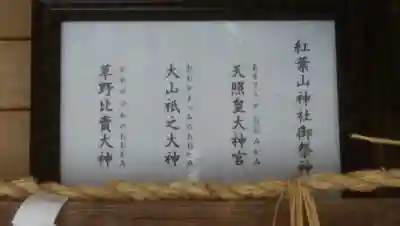 紅葉山神社御祭神
天照皇大神宮
大山祇之大神
草野比賣大神